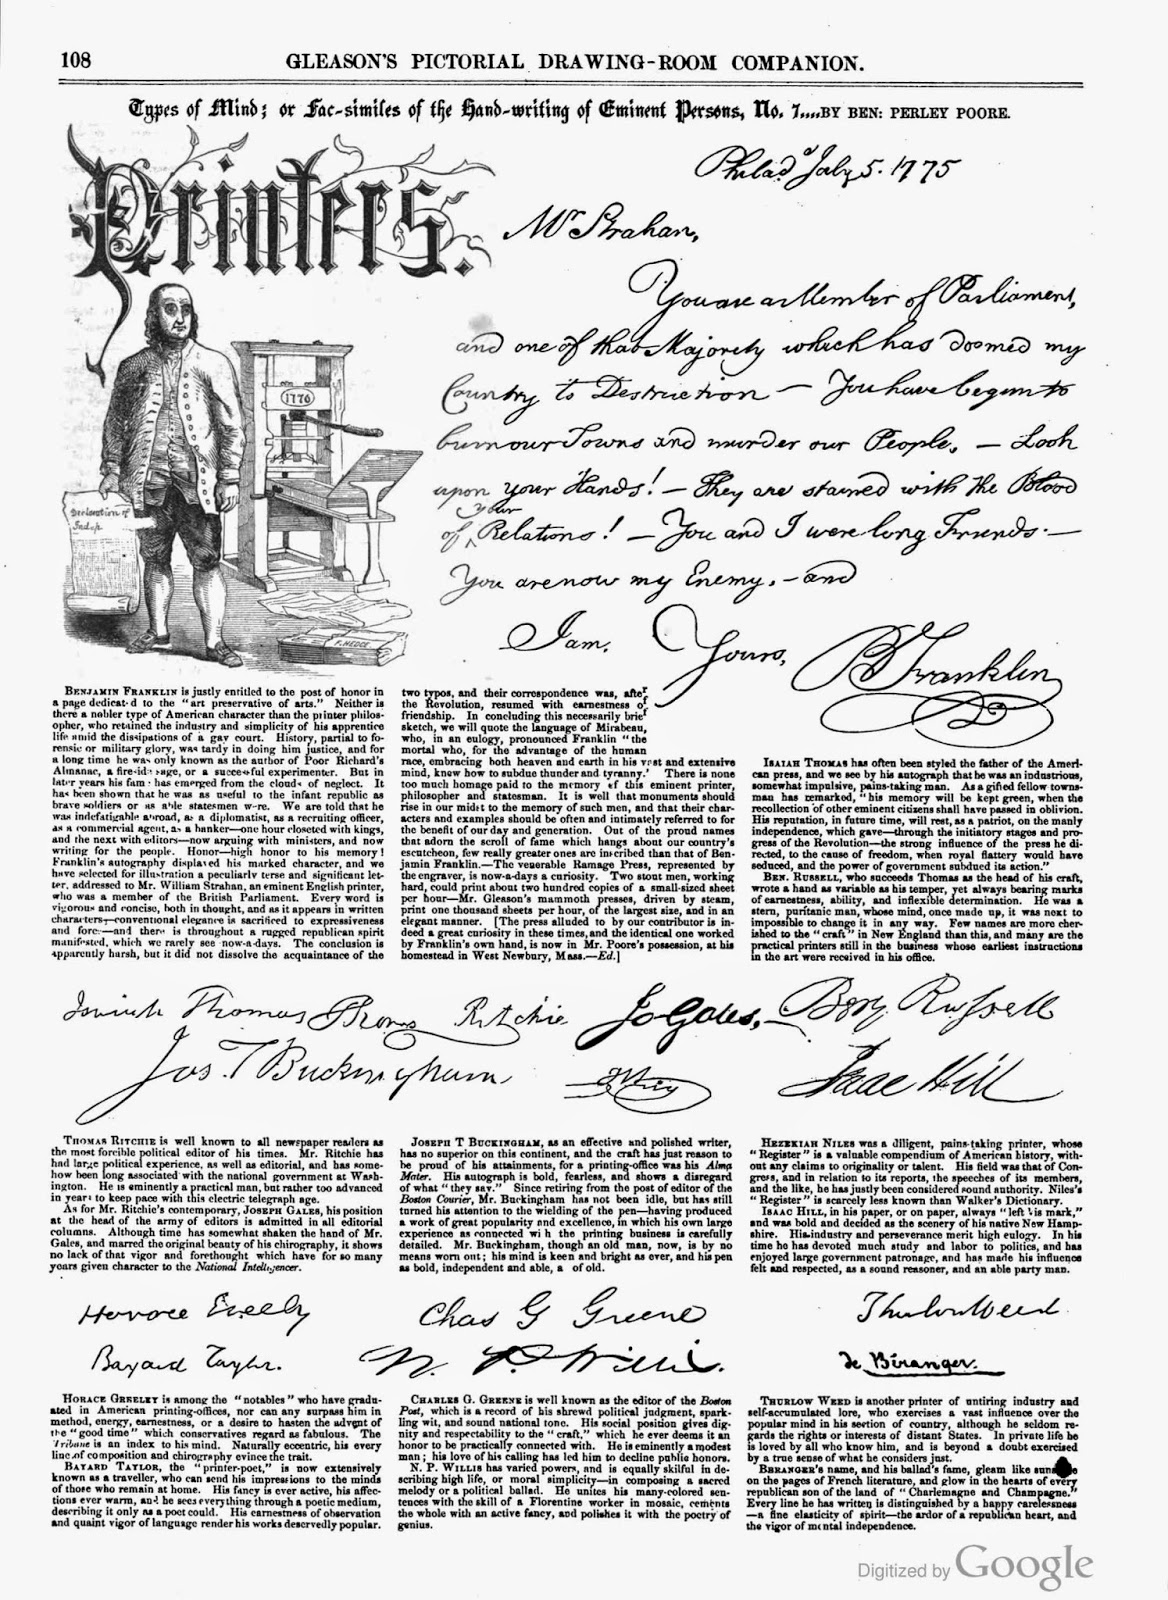 108 GLEASON'S PICTORIAL DRAWING-ROOM COMPANION.
Types of Mind; or Fac-similes of the Hand-writing of Eminent Persons, No. 7....BY BEN: PERLEY POORE.
Printers.
1776
Declaration of
Indep.
F. HEDGE
Philad.a July 5. 1775
Mr Strahan,
You are a Member of Parliament,
and one of that Majority which has doomed my
Country to Destruction — You have begun to
burn our Towns and murder our People, — Look
upon your Hands! — They are stained with the Blood
of your Relations! — You and I were long Friends. —
You are now my Enemy, — and
I am,
Yours,
B Franklin
BENJAMIN FRANKLIN is justly entitled to the post of honor in
a page dedicat d to the "art preservative of arts." Neither is
there a nobler type of American character than the printer philos-
opher, who retained the industry and simplicity of his apprentice
life amid the dissipations of a gay court. History, partial to fo-
rensic or military glory, was tardy in doing him justice, and for
a long time he was only known as the author of Poor Richard's
Almanac, a fire-side sage, or a successful experimenter. But in
later years his fam has emerged from the clouds of neglect. It
has been shown that he was as useful to the infant republic as
brave soldiers or as able statesmen w-re. We are told that he
was indefatigable abroad, as a diplomatist, as a recruiting officer,
as a commercial agent, as a banker—one hour closeted with kings,
and the next with editors—now arguing with ministers, and now
writing for the people. Honor—high honor to his memory!
Franklin's autography displayed his marked character, and we
have selected for illustration a peculiarly terse and significant let-
ter, addressed to Mr. William Strahan, an eminent English printer,
who was a member of the British Parliament. Every word is
vigorous and concise, both in thought, and as it appears in written
characters—conventional elegance is sacrificed to expressiveness
and force—and there is throughout a rugged republican spirit
manifested, which we rarely see now-a-days. The conclusion is
apparently harsh, but it did not dissolve the acquaintance of the
two typos, and their correspondence was, after
the Revolution, resumed with earnestness of
friendship. In concluding this necessarily brief
sketch, we will quote the language of Mirabeau,
who, in an eulogy, pronounced Franklin "the
mortal who, for the advantage of the human
race, embracing both heaven and earth in his vast and extensive
mind, knew how to subdue thunder and tyranny.' There is none
too much homage paid to the memory of this eminent printer,
philosopher and statesman. It is well that monuments should
rise in our midst to the memory of such men, and that their char-
acters and examples should be often and intimately referred to for
the benefit of our day and generation. Out of the proud names
that adorn the scroll of fame which hangs about our country's
escutcheon, few really greater ones are inscribed than that of Ben-
jamin Franklin.—The venerable Ramage Press, represented by
the engraver, is now-a-days a curiosity. Two stout men, working
hard, could print about two hundred copies of a small-sized sheet
per hour—Mr. Gleason's mammoth presses, driven by steam,
print one thousand sheets per hour, of the largest size, and in an
elegant manner. [The press alluded to by our contributor is in-
deed a great curiosity in these times, and the identical one worked
by Franklin's own hand, is now in Mr. Poore's possession, at his
homestead in West Newbury, Mass.—Ed.]
ISAIAH THOMAS has often been styled the father of the Ameri-
can press, and we see by his autograph that he was an industrious,
somewhat impulsive, pains-taking man. As a gifted fellow towns-
man has remarked, "his memory will be kept green, when the
recollection of other eminent citizens shall have passed in oblivion.
His reputation, in future time, will rest, as a patriot, on the manly
independence, which gave—through the initiatory stages and pro-
gress of the Revolution—the strong influence of the press he di-
rected, to the cause of freedom, when royal flattery would have
seduced, and the power of government subdued its action."
BEN. RUSSELL, who succeeds Thomas as the head of his craft,
wrote a hand as variable as his temper, yet always bearing marks
of earnestness, ability, and inflexible determination. He was a
stern, puritanic man, whose mind, once made up, it was next to
impossible to change it in any way. Few names are more cher-
ished to the "craft" in New England than this, and many are the
practical printers still in the business whose earliest instructions
in the art were received in his office.
Isaiah Thomas Thomas Ritchie Jo Gales, Benj Russell
Jos. T Buckingham Isaac Hill
THOMAS RITCHIE is well known to all newspaper readers as
the most forcible political editor of his times. Mr. Ritchie has
had large political experience, as well as editorial, and has some-
how been long associated with the national government at Wash-
ington. He is eminently a practical man, but rather too advanced
in years to keep pace with this electric telegraph age.
As for Mr. Ritchie's contemporary, JOSEPH GALES, his position
at the head of the army of editors is admitted in all editorial
columns. Although time has somewhat shaken the hand of Mr.
Gales, and marred the original beauty of his chirography, it shows
no lack of that vigor and forethought which have for so many
years given character to the National Intelligencer.
JOSEPH T BUCKINGHAM, as an effective and polished writer,
has no superior on this continent, and the craft has just reason to
be proud of his attainments, for a printing-office was his Alma
Mater. His autograph is bold, fearless, and shows a disregard
of what "they say." Since retiring from the post of editor of the
Boston Courier, Mr. Buckingham has not been idle, but has still
turned his attention to the wielding of the pen—having produced
a work of great popularity and excellence, in which his own large
experience as connected wi h the printing business is carefully
detailed. Mr. Buckingham, though an old man, now, is by no
means worn out; his mind is keen and bright as ever, and his pen
as bold, independent and able, a of old.
HEZEKIAH NILES was a diligent, pains-taking printer, whose
"Register" is a valuable compendium of American history, with-
out any claims to originality or talent. His field was that of Con-
gress, and in relation to its reports, the speeches of its members,
and the like, he has justly been considered sound authority. Niles's
"Register" is scarcely less known than Walker's Dictionary.
ISAAC HILL, in his paper, or on paper, always "left his mark,"
and was bold and decided as the scenery of his native New Hamp-
shire. His industry and perseverance merit high eulogy. In his
time he has devoted much study and labor to politics, and has
enjoyed large government patronage, and has made his influence
felt and respected, as a sound reasoner, and an able party man.
Horace Greeley Chas G Greene Thurlow Weed
Bayard Taylor. N. P. Willis. de Béranger.
HORACE GREELEY is among the "notables" who have gradu-
ated in American printing-offices, nor can any surpass him in
method, energy, earnestness, or a desire to hasten the advent of
the "good time" which conservatives regard as fabulous. The
Tribune is an index to his mind. Naturally eccentric, his every
line of composition and chirography evince the trait.
BAYARD TAYLOR, the "printer-poet," is now extensively
known as a traveller, who can send his impressions to the minds
of those who remain at home. His fancy is ever active, his affec-
tions ever warm, and he sees everything through a poetic medium,
describing it only as a poet could. His earnestness of observation
and quaint vigor of language render his works deservedly popular.
CHARLES G. GREENE is well known as the editor of the Boston
Post, which is a record of his shrewd political judgment, spark-
ling wit, and sound national tone. His social position gives dig-
nity and respectability to the "craft," which he ever deems it an
honor to be practically connected with. He is eminently a modest
man; his love of his calling has led him to decline public honors.
N. P. WILLIS has varied powers, and is equally skilful in de-
scribing high life, or moral simplicity—in composing a sacred
melody or a political ballad. He unites his many-colored sen-
tences with the skill of a Florentine worker in mosaic, cements
the whole with an active fancy, and polishes it with the poetry of
genius.
THURLOW WEED is another printer of untiring industry and
self-accumulated lore, who exercises a vast influence over the
popular mind in his section of country, although he seldom re-
gards the rights or interests of distant States. In private life he
is loved by all who know him, and is beyond a doubt exercised
by a true sense of what he considers just.
BERANGER'S name, and his ballad's fame, gleam like
on the pages of French literature, and glow in the hearts of every
republican son of the land of "Charlemagne and Champagne."
Every line he has written is distinguished by a happy carelessness
—a fine elasticity of spirit—the ardor of a republican heart, and
the vigor of mental independence.
Digitized by Google